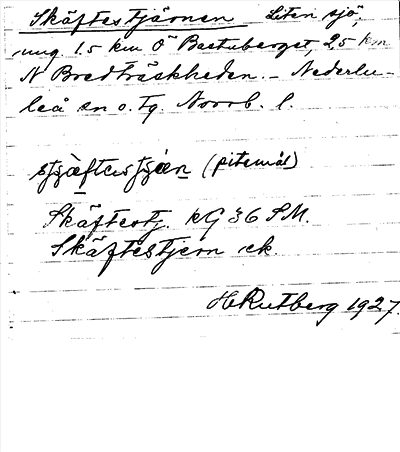 Skäftestjärnen Liten sjö,
ung. 1.5 km Ö Bastuberget, 2,5 km
N Bredträskheden. - Nederlu-
leå sn o. tg. Norrb. l.
(pitemål)
Skäftestj. KG 36 SM.
Skäftestjern ek.
H Rutberg 1927.